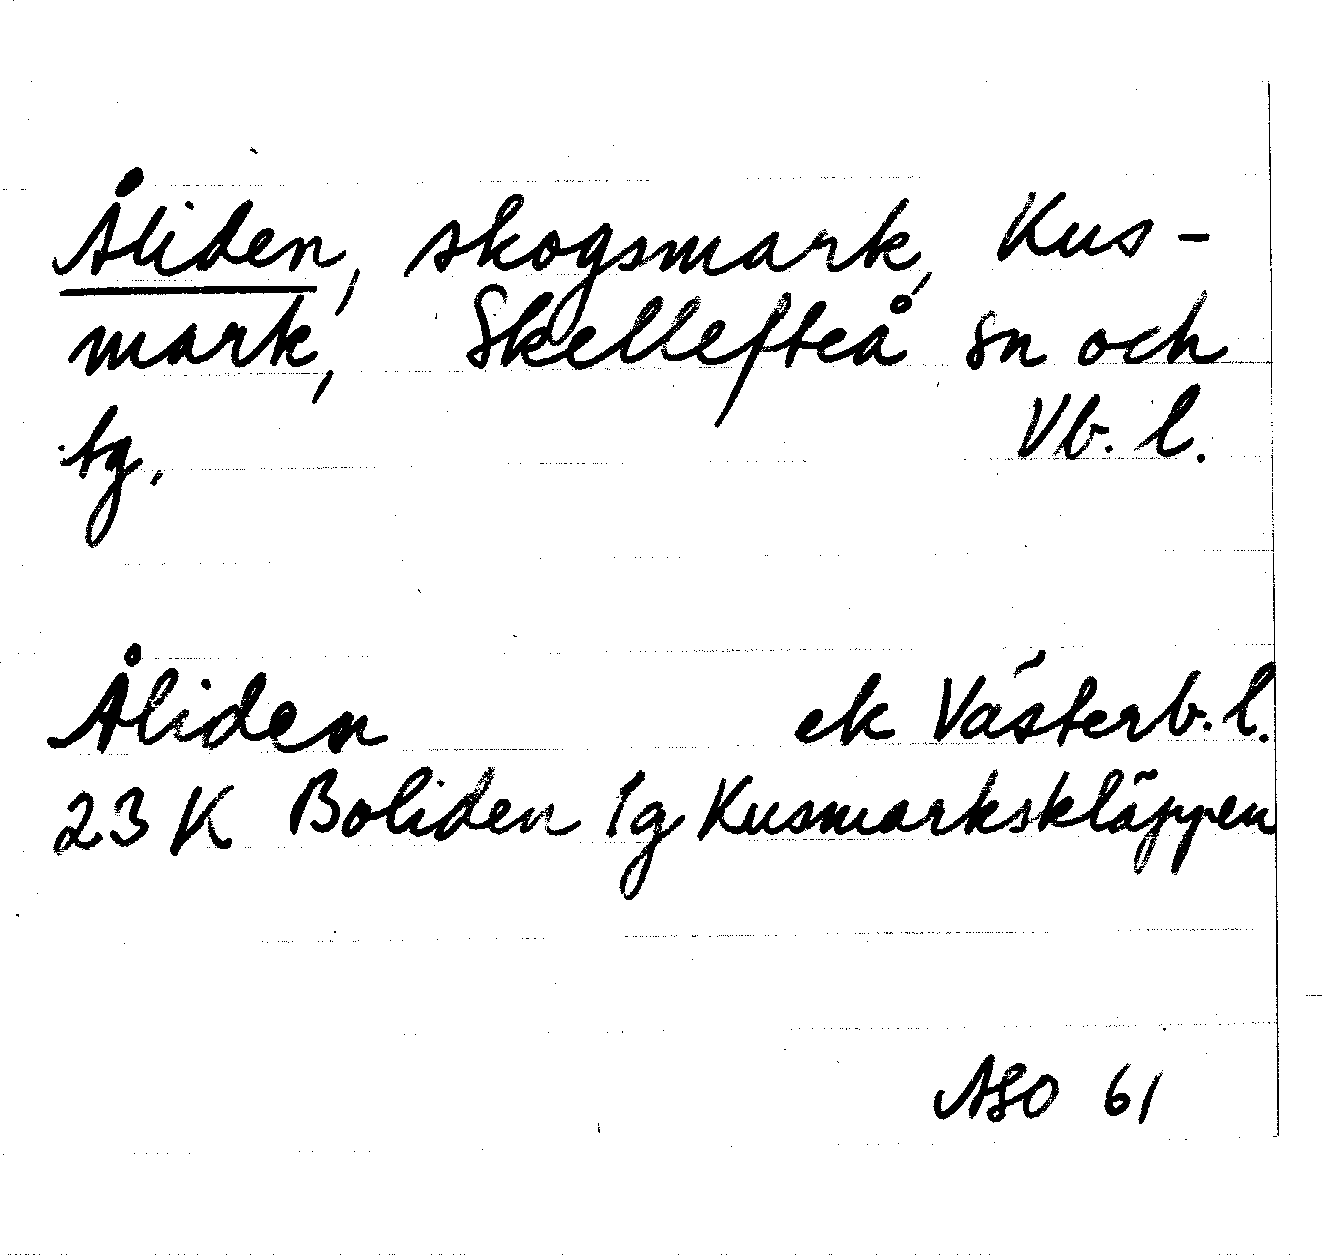 Åliden, skogsmark, Kus-
mark, Skellefteå sn och
tg. Vb. l.
Åliden ek Västerb. l.
23 K Boliden 1g Kusmarkskläppen
ASO 61